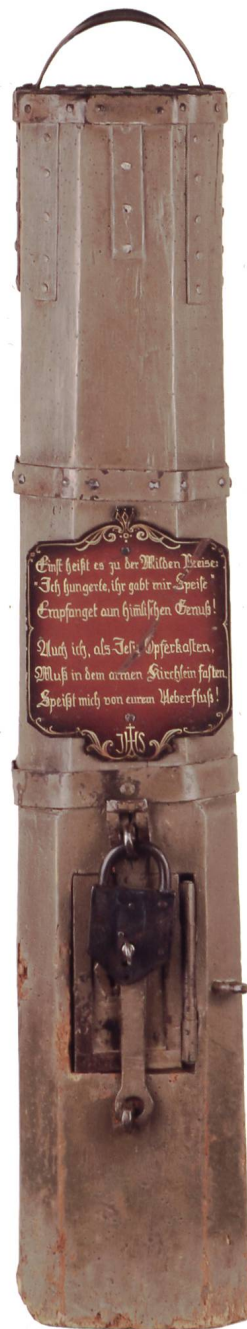 Einst heißt es zu der Milden Preise:
"Ich hungerte, ihr gabt mir Speise
Empfanget nun himlischen Genuß!
Auch ich, als Jesu Opferkasten,
Muß in dem armen Kirchlein fasten
Speißt mich von eurem Ueberfluß!
IHS